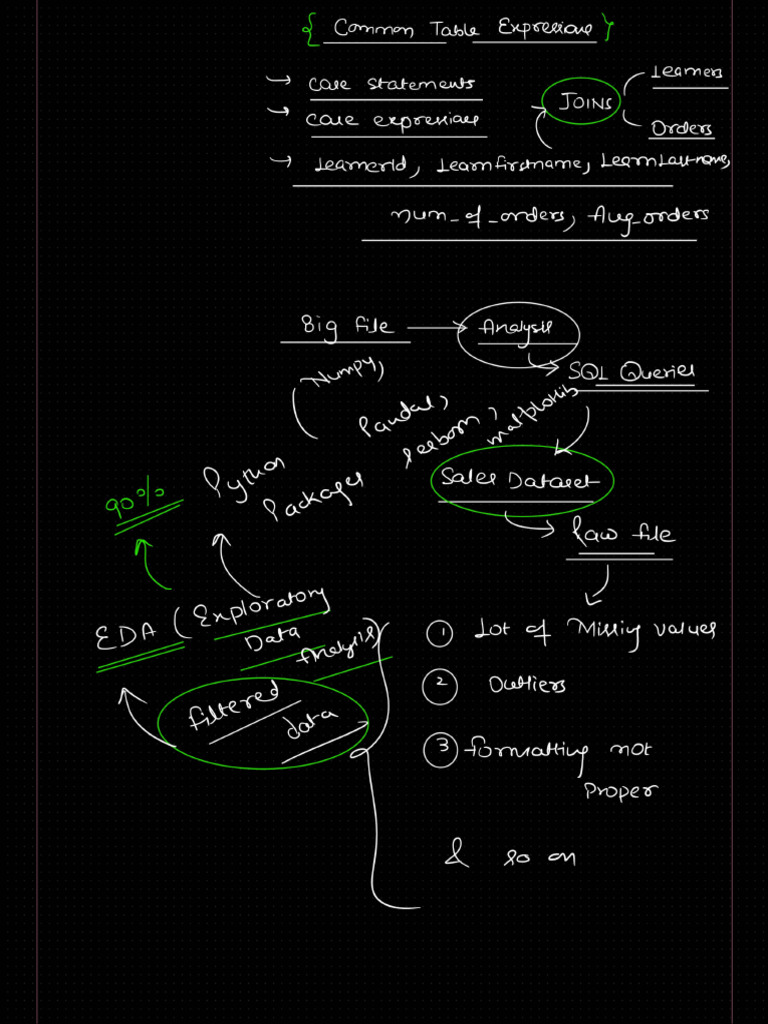 { Common Table Expressions }
→ Case statements
→ Case expressions
JOINS
Learners
Orders
→ LearnerId, Learnfirstname, LearnLastname,
num_of_orders, Avg_orders
Big file → Analysis
SQL Queries
Numpy, Pandas, seeborn, matplotlib
Python Packages
90%
Sales Dataset
Raw file
EDA (Exploratory
Data
Analysis)
filtered
data
① Lot of Missing values
② Outliers
③ formatting not
Proper
& so on